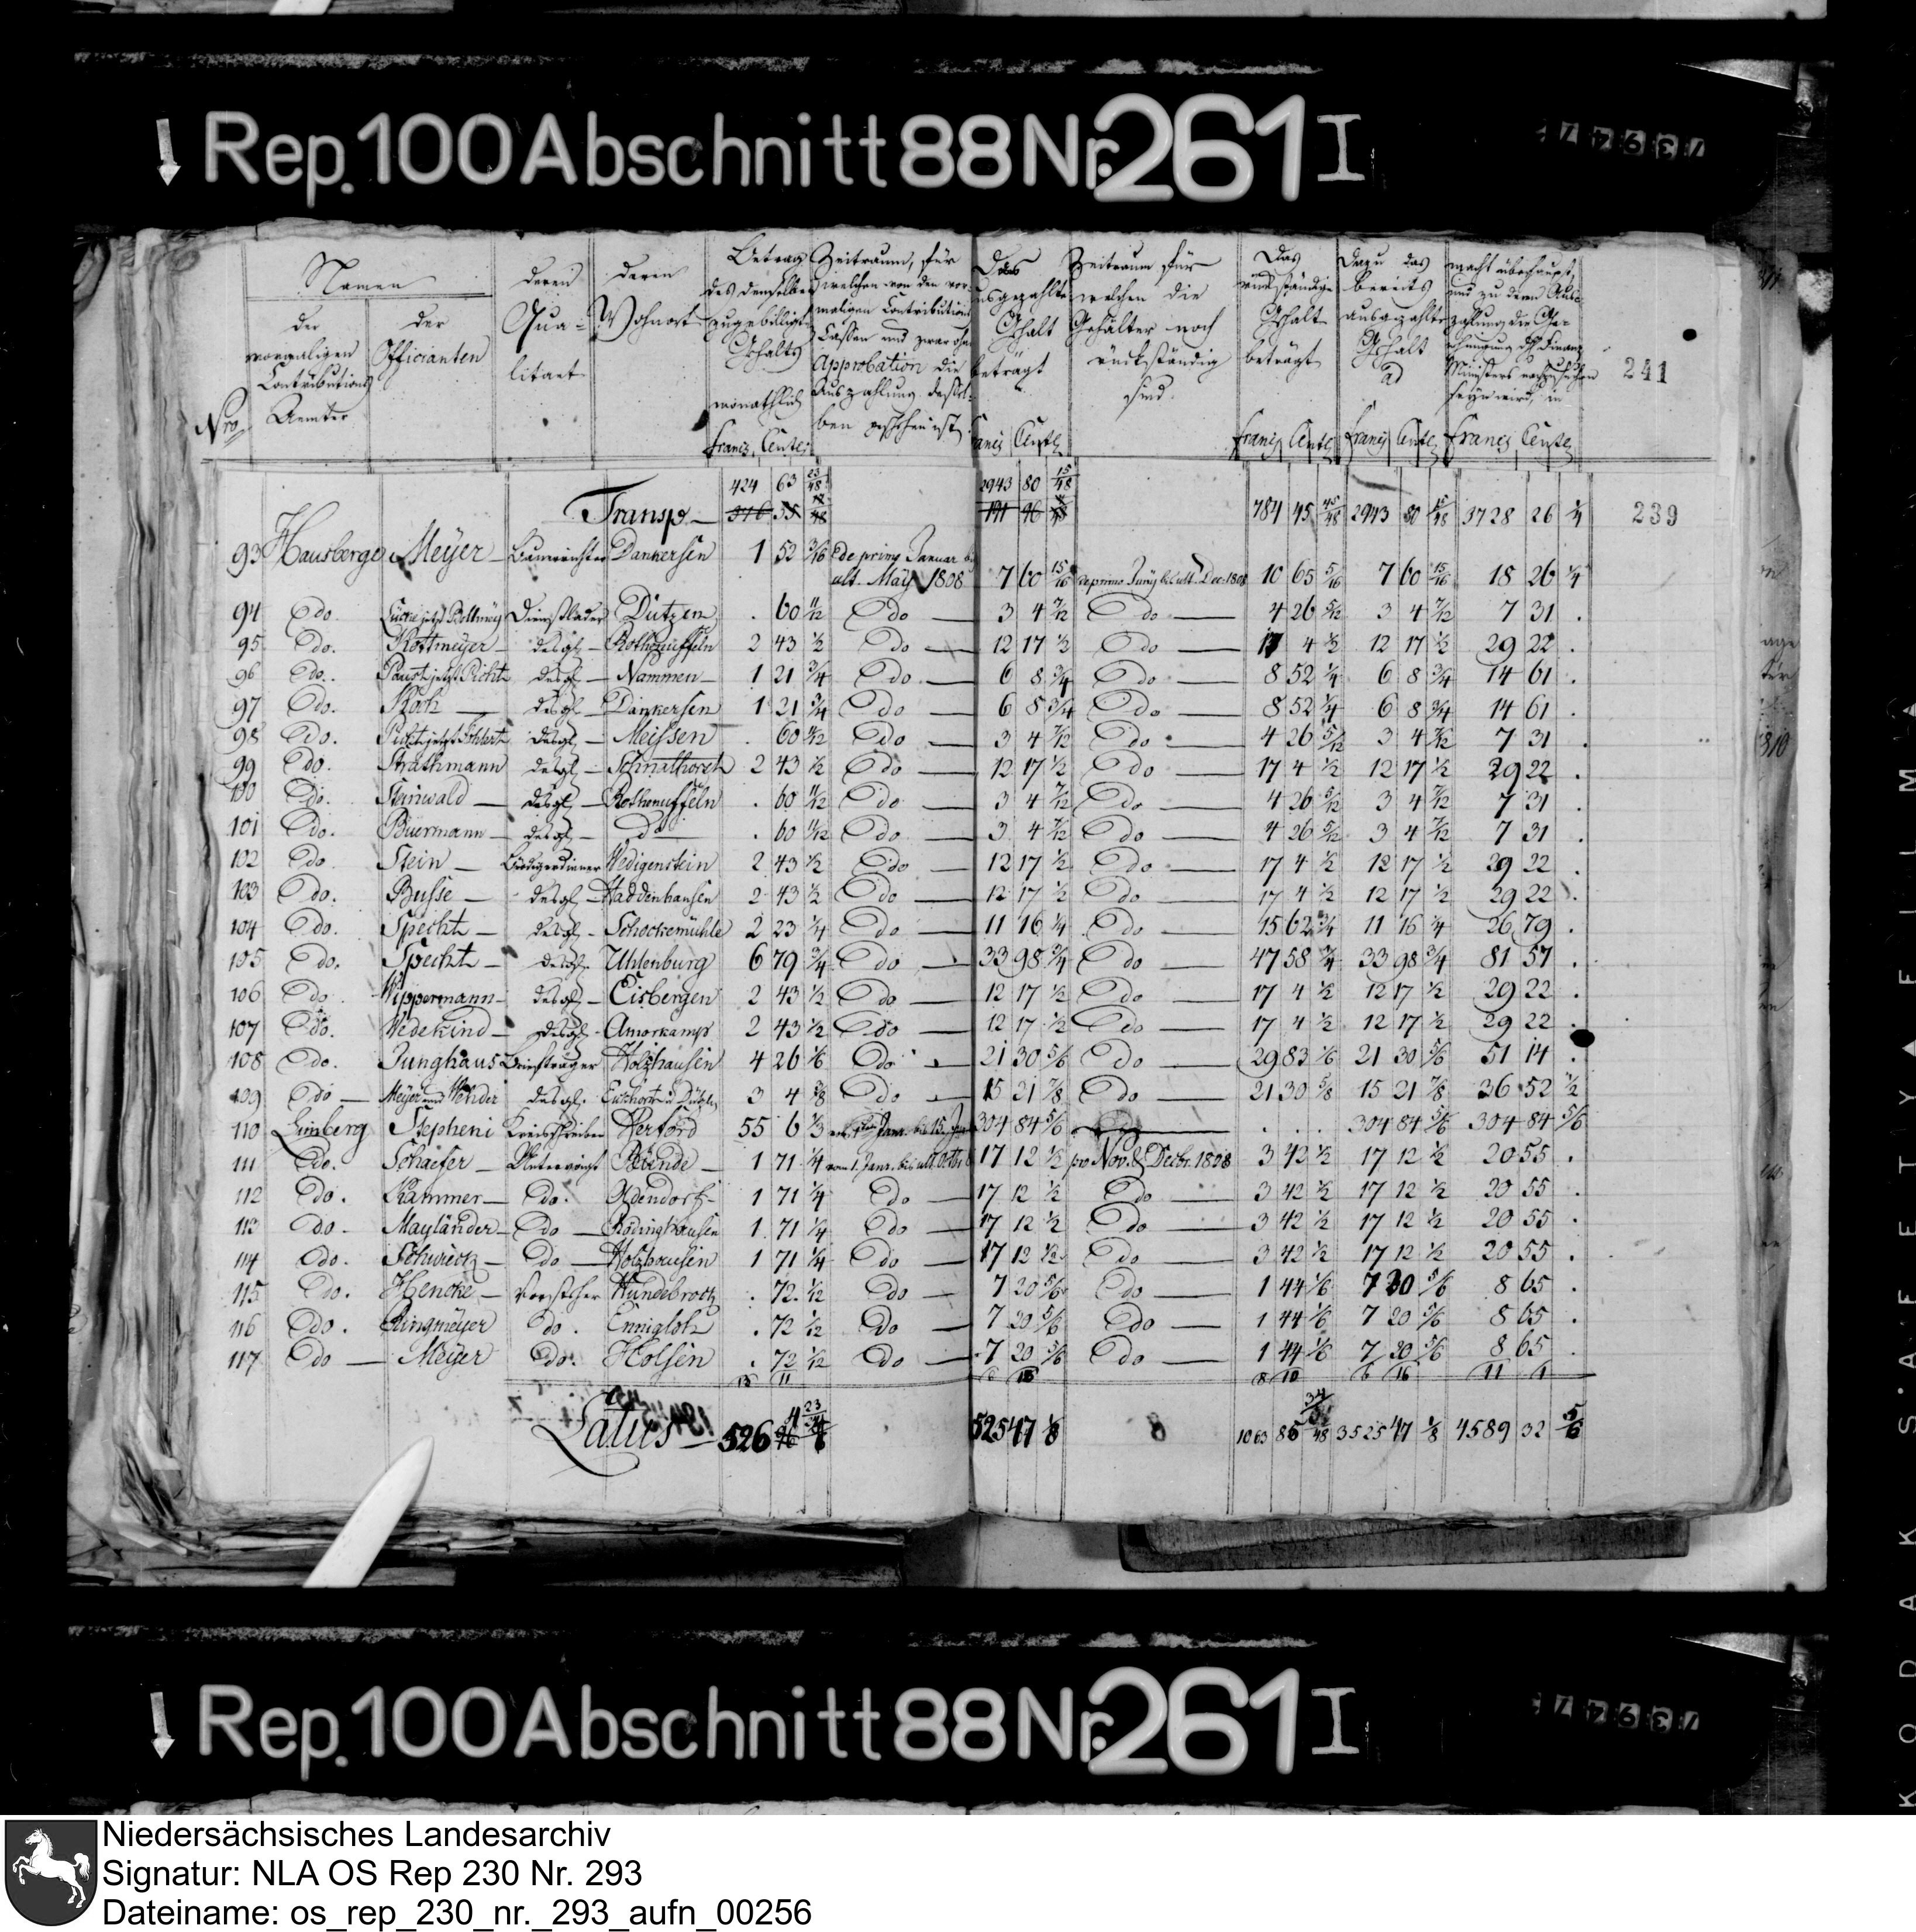 Rep. 100 Abschnitt 88 Nr. 261 I
73947
Namen
der vormaligen Contributions Aemter
der Officianten
deren Qualitaet
deren Wohnort
Betrag des denselben zugebilligten Gehalts monathlich
Zeitraum, für welchen von den vormaligen Contributions Cassen und zwar ohne Approbation die Auszahlung desselben geschehen ist
Das ausgezahlte Gehalt beträgt
Zeitraum für welchen die Gehälter noch rückständig sind.
Das rückständige Gehalt beträgt
Dazu das bereits ausgezahlte Gehalt ad
macht überhaupt, und zu deren Auszahlung die Genehmigung des Finanz Ministers nachzusuchen seyn wird, in
241
Nro
Francs Cents Francs Cents Francs Cents Francs Cents Francs Cents
424 63 23/48 2943 80 15/48
Transp 784 45 45/48 2943 80 15/48 3728 26 1/4 239
93 Hausberge Meyer Dankersen 1 52 3/16 de primo Januar bis
ult. May 1808 7 60 15/16 de primo Juny bis ult. Dec. 1808 10 65 5/16 7 60 15/16 18 26 1/4
94 do. Dützen . 60 11/12 do 3 4 7/12 do 4 26 5/12 3 4 7/12 7 31 .
95 do. Kottmeyer desgl. Rothenuffeln 2 43 1/2 do 12 17 1/2 do 17 4 1/2 12 17 1/2 29 22 .
96 do. desgl. Nammen 1 21 3/4 do 6 8 3/4 do 8 52 1/4 6 8 3/4 14 61 .
97 do. Koch desgl. Dankersen 1 21 3/4 do 6 8 3/4 do 8 52 1/4 6 8 3/4 14 61 .
98 do. desgl. Meissen . 60 11/12 do 3 4 7/12 do 4 26 5/12 3 4 7/12 7 31 .
99 do. Strathmann desgl. Schnathorst 2 43 1/2 do 12 17 1/2 do 17 4 1/2 12 17 1/2 29 22 .
100 do. Steinwald desgl. Rothenuffeln . 60 11/12 do 3 4 7/12 do 4 26 5/12 3 4 7/12 7 31 .
101 do. Büermann desgl. do . 60 11/12 do 3 4 7/12 do 4 26 5/12 3 4 7/12 7 31 .
102 do Stein Wedigenstein 2 43 1/2 do 12 17 1/2 do 17 4 1/2 12 17 1/2 29 22 .
103 do. Busse desgl. Haddenhausen 2 43 1/2 do 12 17 1/2 do 17 4 1/2 12 17 1/2 29 22 .
104 do. Specht desgl. Schockemühle 2 23 1/4 do 11 16 1/4 do 15 62 3/4 11 16 1/4 26 79 .
105 do. Specht desgl. Uhlenburg 6 79 3/4 do 33 98 3/4 do 47 58 1/4 33 98 3/4 81 57 .
106 do Wippermann desgl. Eisbergen 2 43 1/2 do 12 17 1/2 do 17 4 1/2 12 17 1/2 29 22 .
107 do. Wedekind desgl. Amorkamp 2 43 1/2 do 12 17 1/2 do 17 4 1/2 12 17 1/2 29 22 .
108 do. Junghaus Briefträger Holzhausen 4 26 1/6 do 21 30 5/6 do 29 83 1/6 21 30 5/6 51 14 .
109 do Meyer und desgl. 3 4 3/8 do 15 21 7/8 do 21 30 5/8 15 21 7/8 36 52 1/2
110 Limberg Stepheni Kreisschreiber Herford 55 6 1/3 304 84 5/6 . . . 304 84 5/6 304 84 5/6
111 do. Schaefer Untervoigt Bünde 1 71 1/4 vom 1. Janr. bis ult. Octbr. 17 12 1/2 pro Nov. & Decbr. 1808 3 42 1/2 17 12 1/2 20 55 .
112 do. Kammer do. Oldendorf 1 71 1/4 do 17 12 1/2 do 3 42 1/2 17 12 1/2 20 55 .
113 do. Mayländer do Rödinghausen 1 71 1/4 do 17 12 1/2 do 3 42 1/2 17 12 1/2 20 55 .
114 do. do Holzhausen 1 71 1/4 do 17 12 1/2 do 3 42 1/2 17 12 1/2 20 55 .
115 do. Hencke Vorsteher Hundebrock . 72 1/12 do 7 20 5/6 do 1 44 1/6 7 20 5/6 8 65 .
116 do. Ringmeyer do. Ennigloh . 72 1/12 do 7 20 5/6 do 1 44 1/6 7 20 5/6 8 65 .
117 do Meyer do. Holsen . 72 1/12 do 7 20 5/6 do 1 44 1/6 7 20 5/6 8 65
Latus 526 525 47 1/8 1063 3525 47 1/8 4589 32 5/6
Rep. 100 Abschnitt 88 Nr. 261 I
73947
KODAK SAFETY FILM
Niedersächsisches Landesarchiv
Signatur: NLA OS Rep 230 Nr. 293
Dateiname: os_rep_230_nr._293_aufn_00256